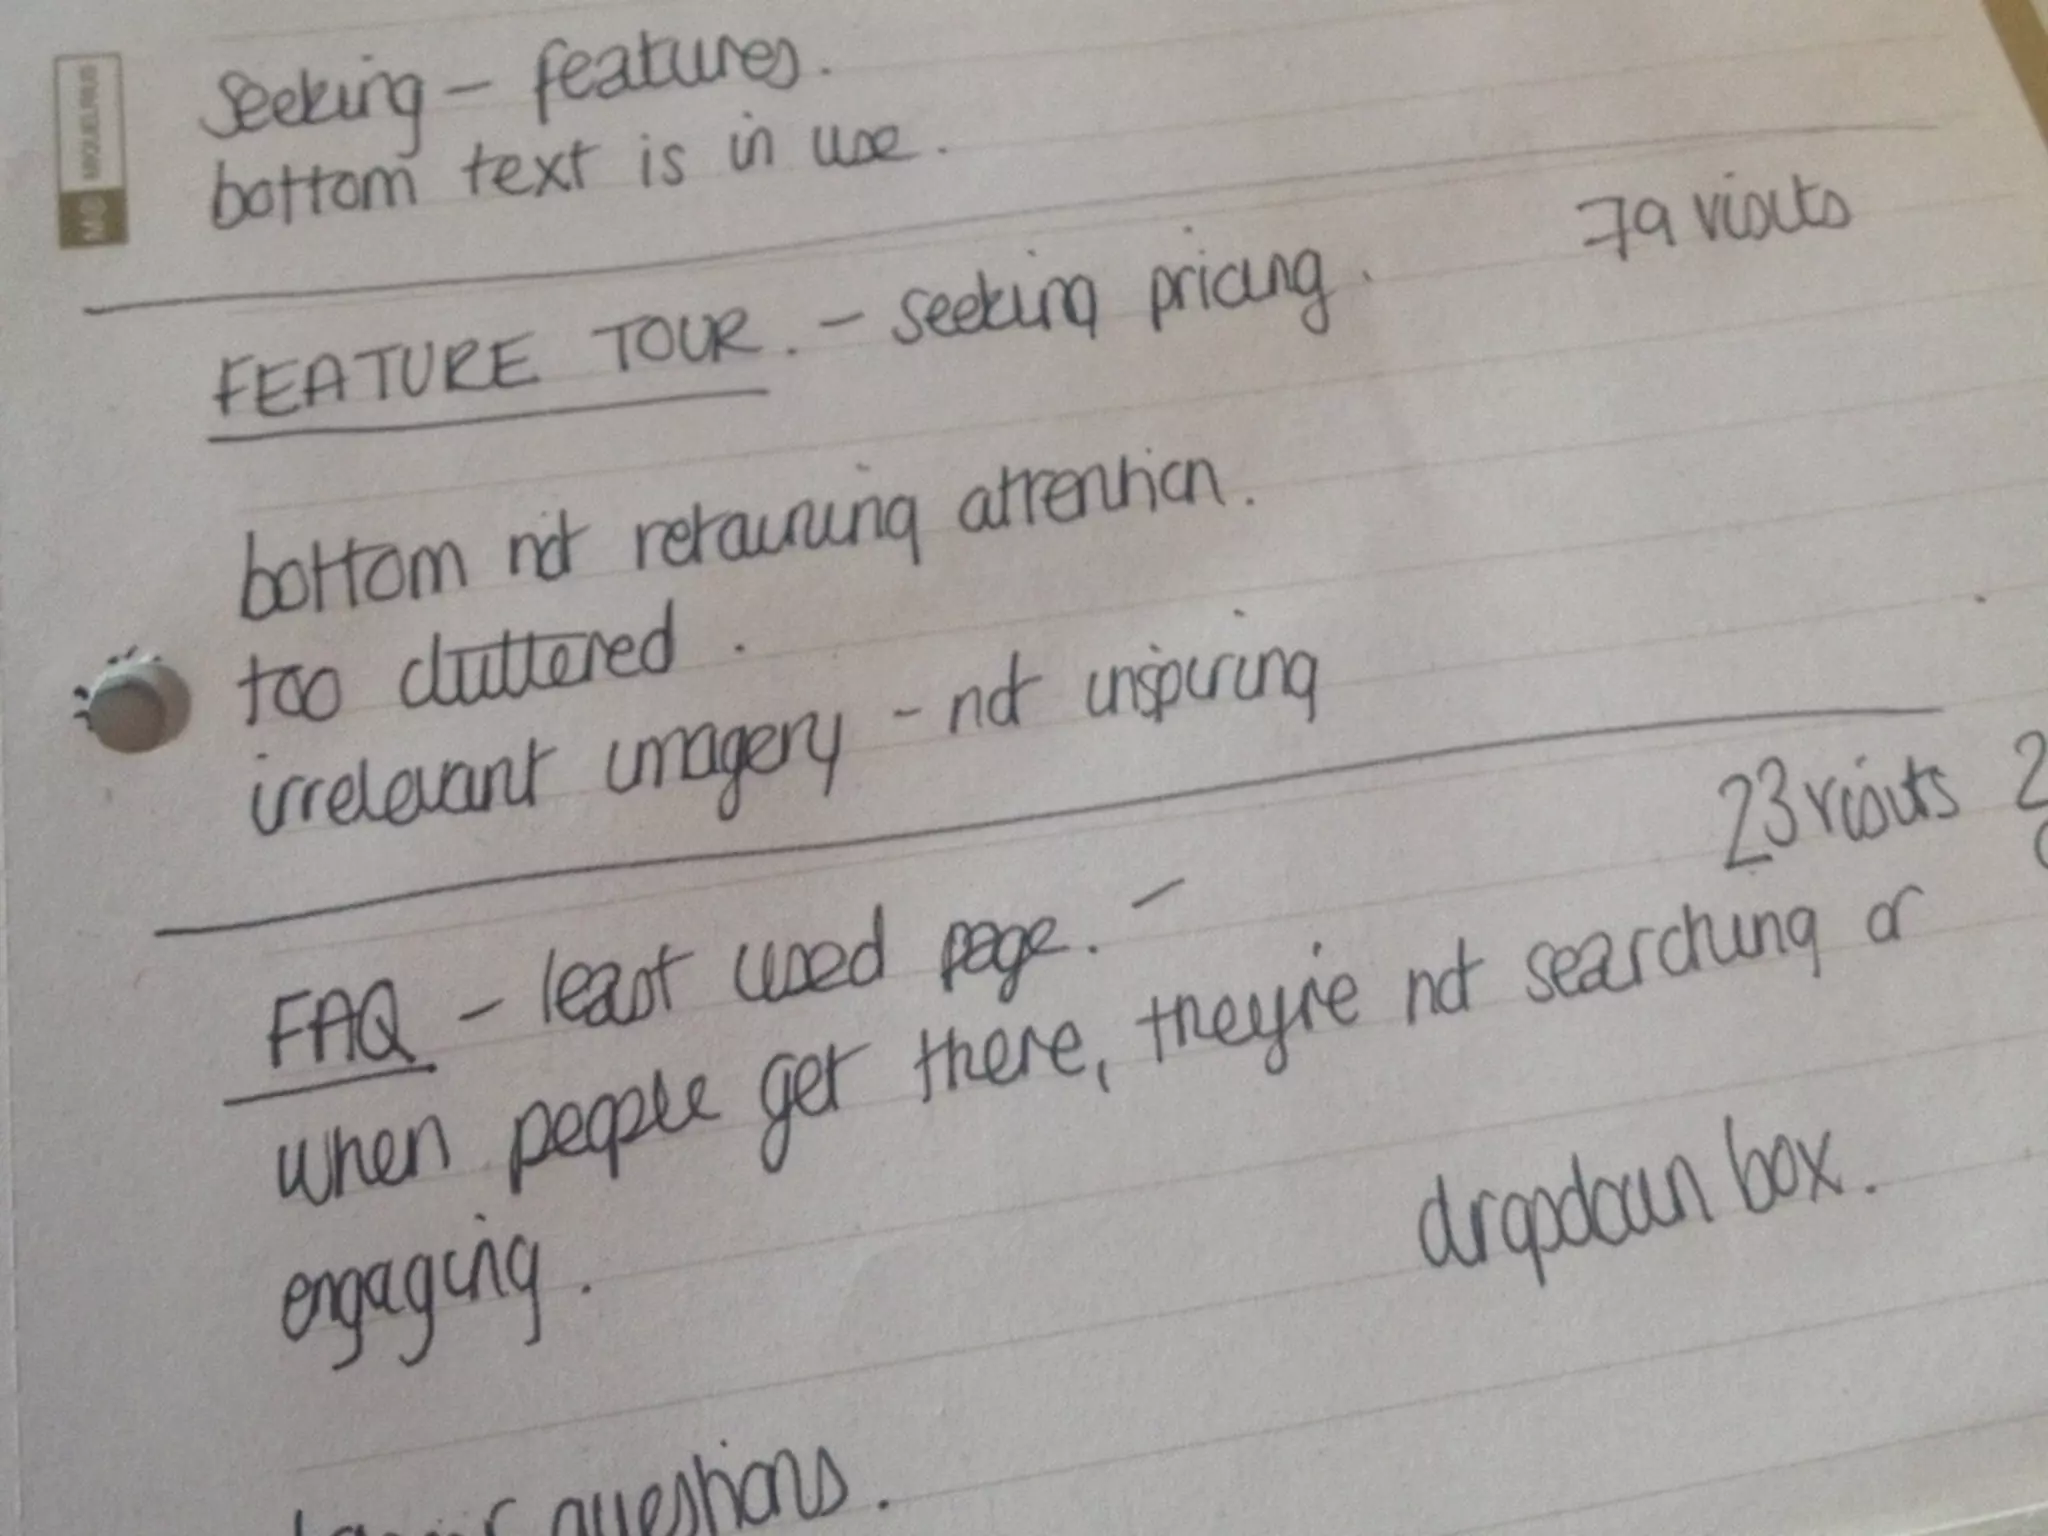 MIQUELRIUS
seeking – features.
bottom text is in use.
79 visits
FEATURE TOUR. – seeking pricing.
bottom not retaining attention.
too cluttered.
irrelevant imagery – not inspiring
23 visits 2
FAQ – least used page. –
when people get there, they're not searching or
engaging.
dropdown box.
questions.